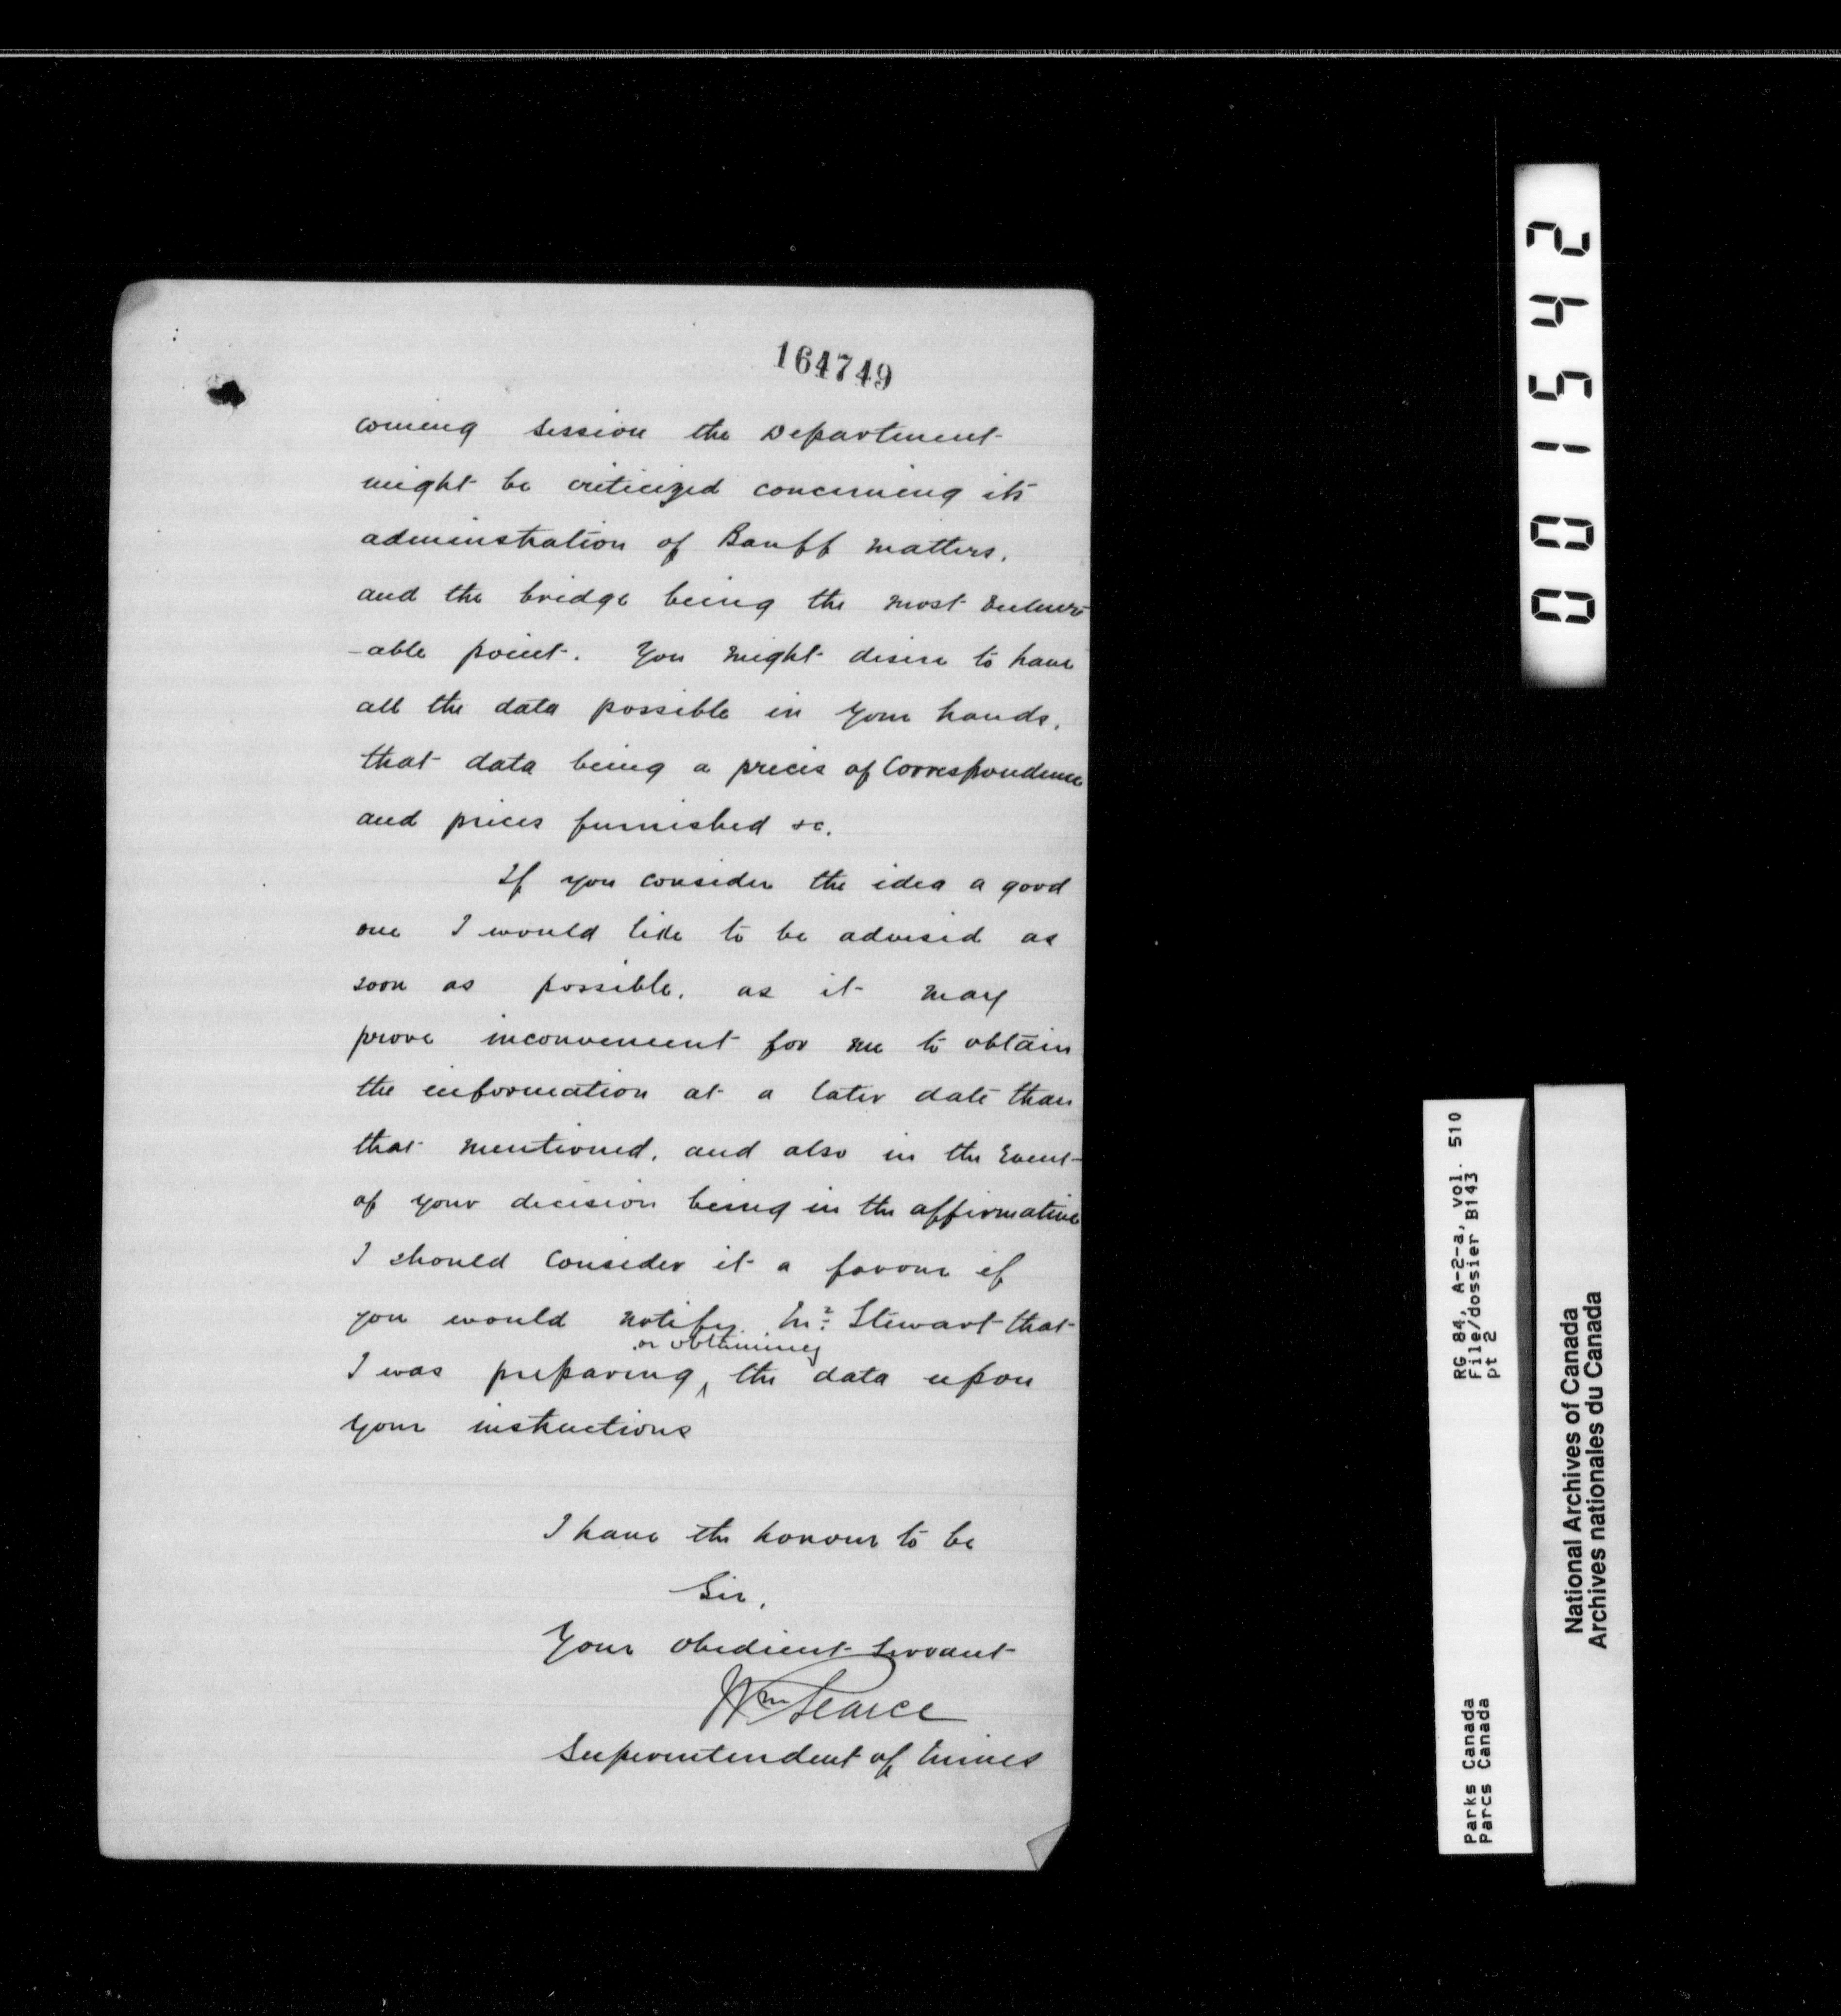 164749
coming session the Department
might be criticized concerning its
administration of Banff matters,
and the bridge being the most
-able point. You might desire to have
all the data possible in your hands,
that data being a precis of Correspondence
and prices furnished &c.
If you consider the idea a good
one I would like to be advised as
soon as possible, as it may
prove inconvenient for me to obtain
the information at a later date than
that mentioned, and also in the event
of your decision being in the affirmative
I should consider it a favour if
you would notify Mr. Stewart that
or obtaining
I was preparing ^ the data upon
your instructions
I have the honour to be
Sir,
Your obedient servant
Wm Pearce
Superintendent of Mines
001542
RG 84, A-2-a, vol. 510
File/dossier B143
pt 2
Parks Canada
Parcs Canada
National Archives of Canada
Archives nationales du Canada